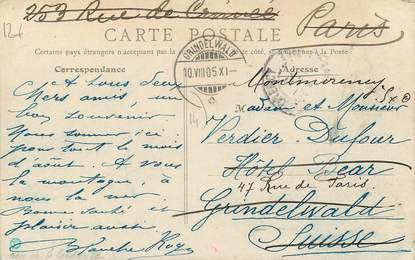 253 Rue de
Paris
12f
CARTE POSTALE
Correspondance
Adresse
GRINDELWALD
10.VIII.05.X1-
14
A vous deux
chers amis, un
bon souvenir.
Nous sommes ici
pour tout le mois
d'août. A vous
la montagne, à
nous la mer.
Bonne santé et
plaisir aussi.
Blanche Roy
Montmorency
S & O
Madame et Monsieur
Verdier-Dufour
Hôtel Bear
47 Rue de Paris
Grindelwald
Suisse